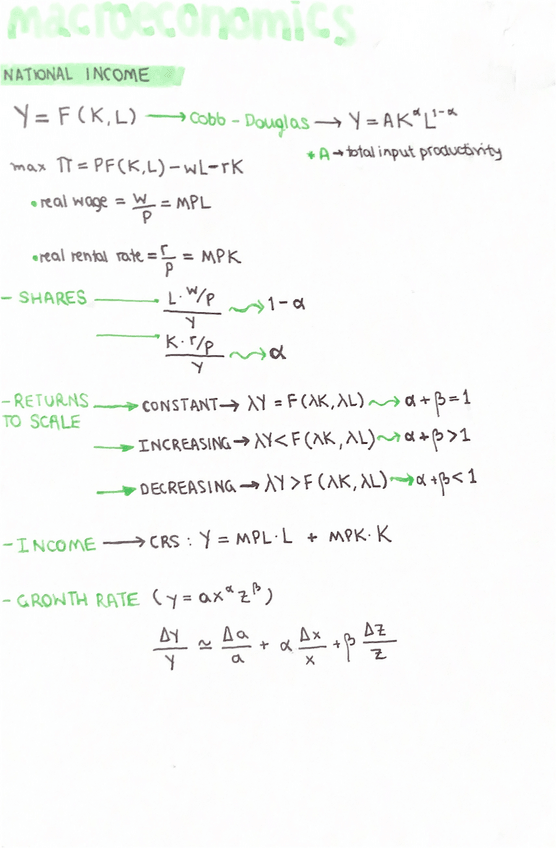 macroeconomics
NATIONAL INCOME
Y = F(K,L) → Cobb-Douglas → Y = AK^α L^1-α
* A → total input productivity
max Π = PF(K,L) - wL - rK
• real wage = w/p = MPL
• real rental rate = r/p = MPK
- SHARES — L · w/p / Y ⇝ 1-α
— K · r/p / Y ⇝ α
- RETURNS TO SCALE → CONSTANT → λY = F(λK, λL) ⇝ α + β = 1
→ INCREASING → λY < F(λK, λL) ⇝ α + β > 1
→ DECREASING → λY > F(λK, λL) ⇝ α + β < 1
- INCOME → CRS : Y = MPL · L + MPK · K
- GROWTH RATE (y = ax^α z^β)
ΔY/Y ≃ Δa/a + α Δx/x + β Δz/z